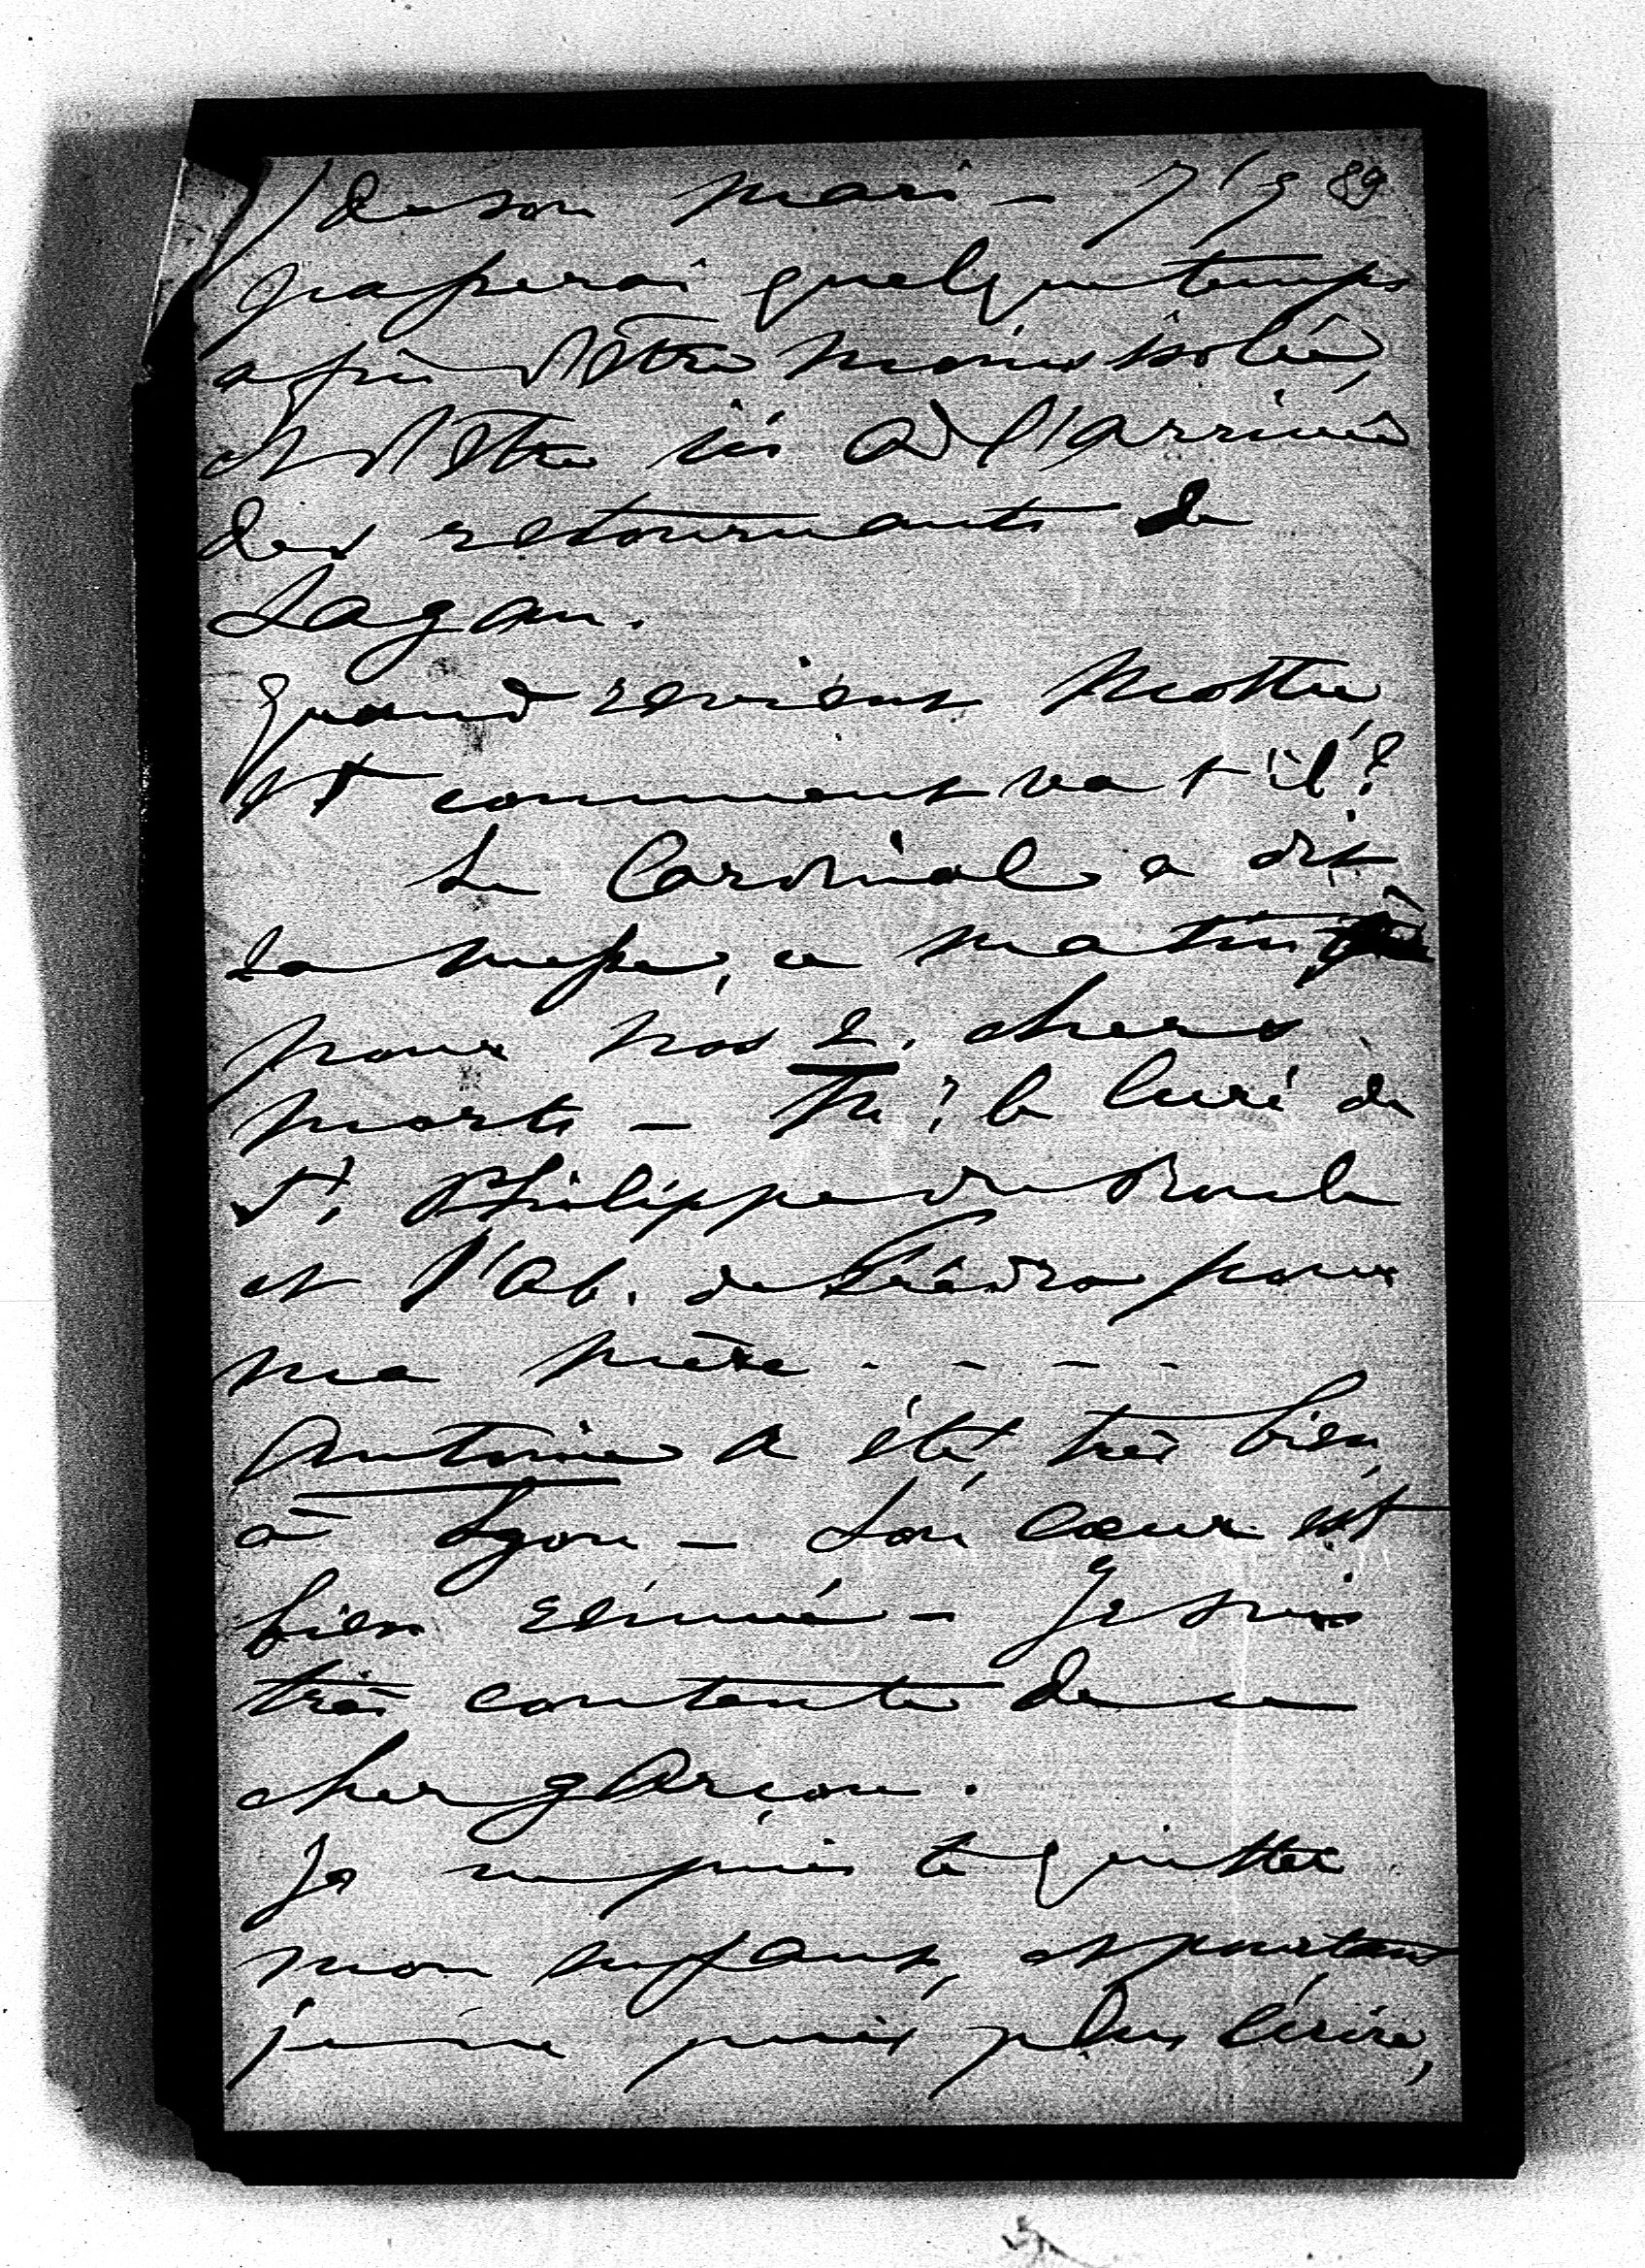 de son mari – J'y 89
passerai quelque temps
afin d'être moins isolée,
et d'être ici à l'arrivée
des retournants de
Sagan.
Quand revient Mottu
et comment va t'il ?
Le Cardinal a dit
la messe, ce matin
pour nos 2. chers
morts – M. le Curé de
St. Philippe du Roule
et l'Ab. de pour
ma mère . - - -
Antoine a été très bien
à Lyon – Son cœur est
bien remué – Je suis
très contente de ce
cher garçon.
Je ne puis te quitter
mon enfant, et pourtant
je ne puis plus écrire,